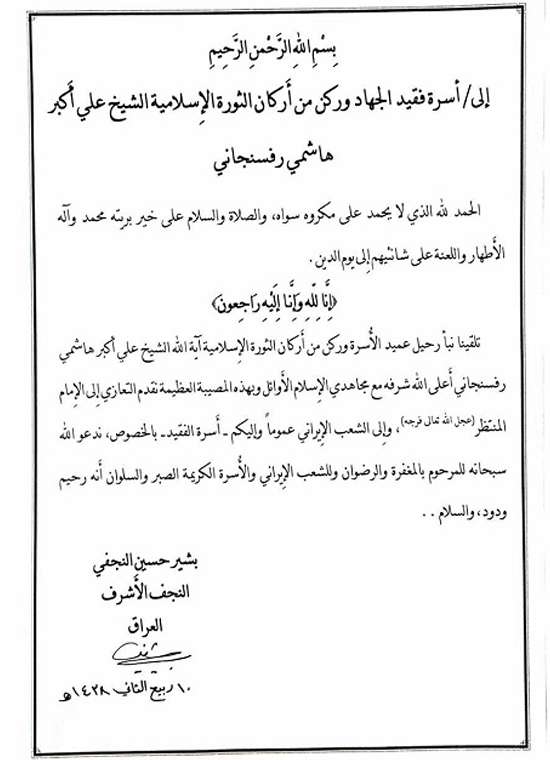 بِسْمِ اللهِ الرَّحْمنِ الرَّحِيمِ
إلى/ أسرة فقيد الجهاد وركن من أركان الثورة الإسلامية الشيخ علي أكبر
هاشمي رفسنجاني
الحمد لله الذي لا يحمد على مكروه سواه، والصلاة والسلام على خير بريته محمد وآله
الأطهار واللعنة على شانئيهم إلى يوم الدين.
﴿إِنَّا لِلّهِ وَإِنَّا إِلَيْهِ رَاجِعونَ﴾
تلقينا نبأ رحيل عميد الأسرة وركن من أركان الثورة الإسلامية آية الله الشيخ علي أكبر هاشمي
رفسنجاني أعلى الله شرفه مع مجاهدي الإسلام الأوائل وبهذه المصيبة العظيمة نقدم التعازي إلى الإمام
المنتظر (عجل الله تعالى فرجه)، وإلى الشعب الإيراني عموماً وإليكم ـ أسرة الفقيد ـ بالخصوص، ندعو الله
سبحانه للمرحوم بالمغفرة والرضوان وللشعب الإيراني والأسرة الكريمة الصبر والسلوان أنه رحيم
ودود، والسلام . .
بشير حسين النجفي
النجف الأشرف
العراق
١٠ ربيع الثاني ١٤٣٨هـ